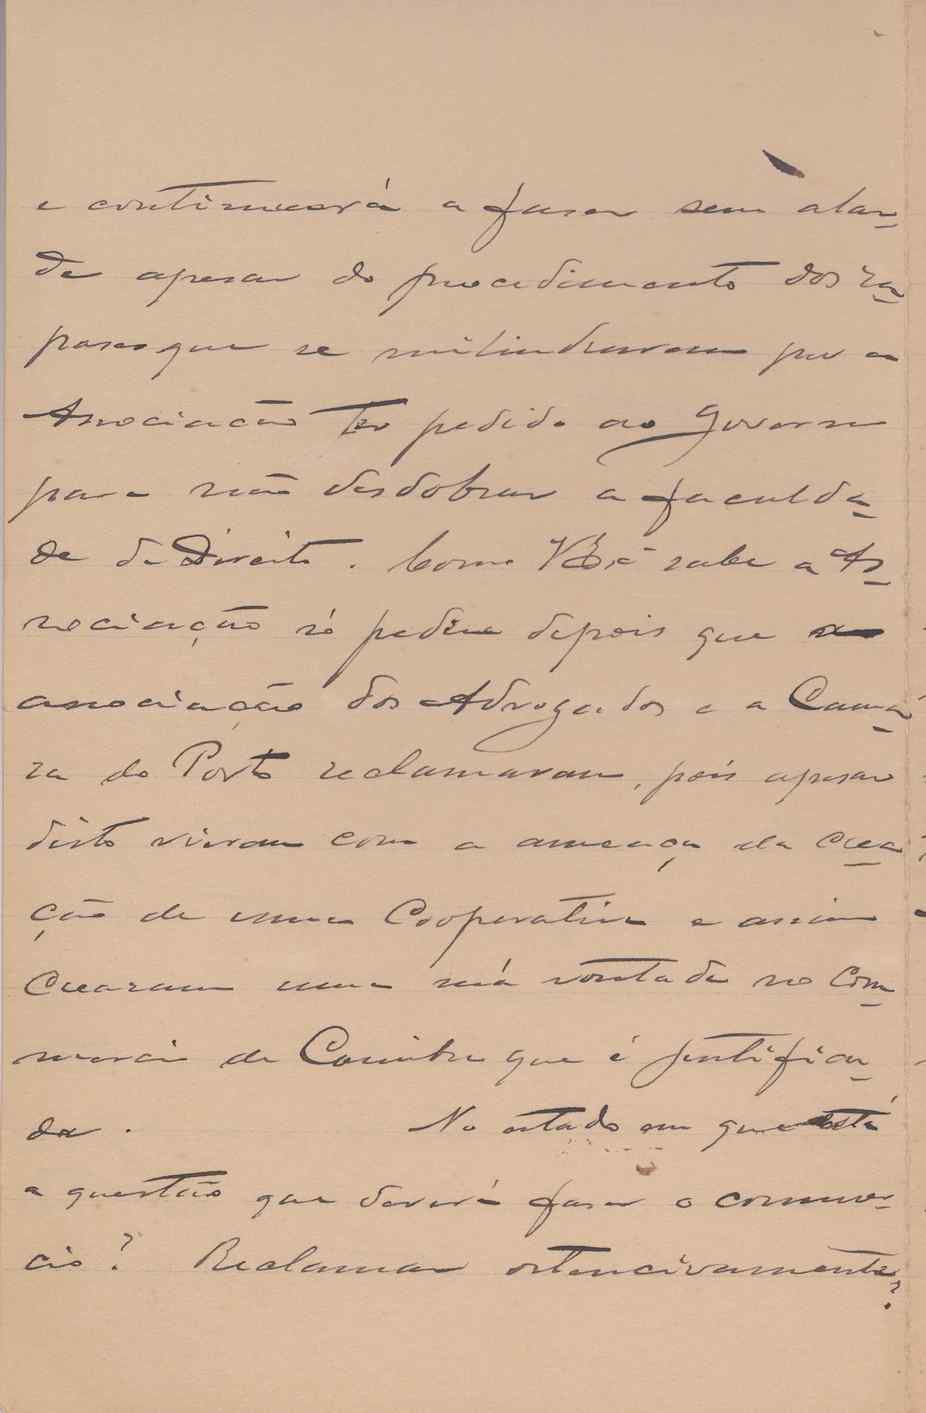 e continuará a faser sem alar-
de apesar do procedimento dos ra-
pases que se milindraram por a
Associação ter pedido ao Governo
para não desdobrar a faculda-
de de Direito. Como V.Exª sabe a As-
sociação só pediu depois que a
associação dos Advogados e a Cama-
ra do Porto reclamaram, pois apesar
disto vieram com a ameaça da crea-
ção de uma Cooperativa e assim
crearam uma má vontade no Com-
mercio de Coimbra que é justifica-
da. No estado em que está
a questão que deverá faser o commer-
cio? Reclamar ostencivamente?